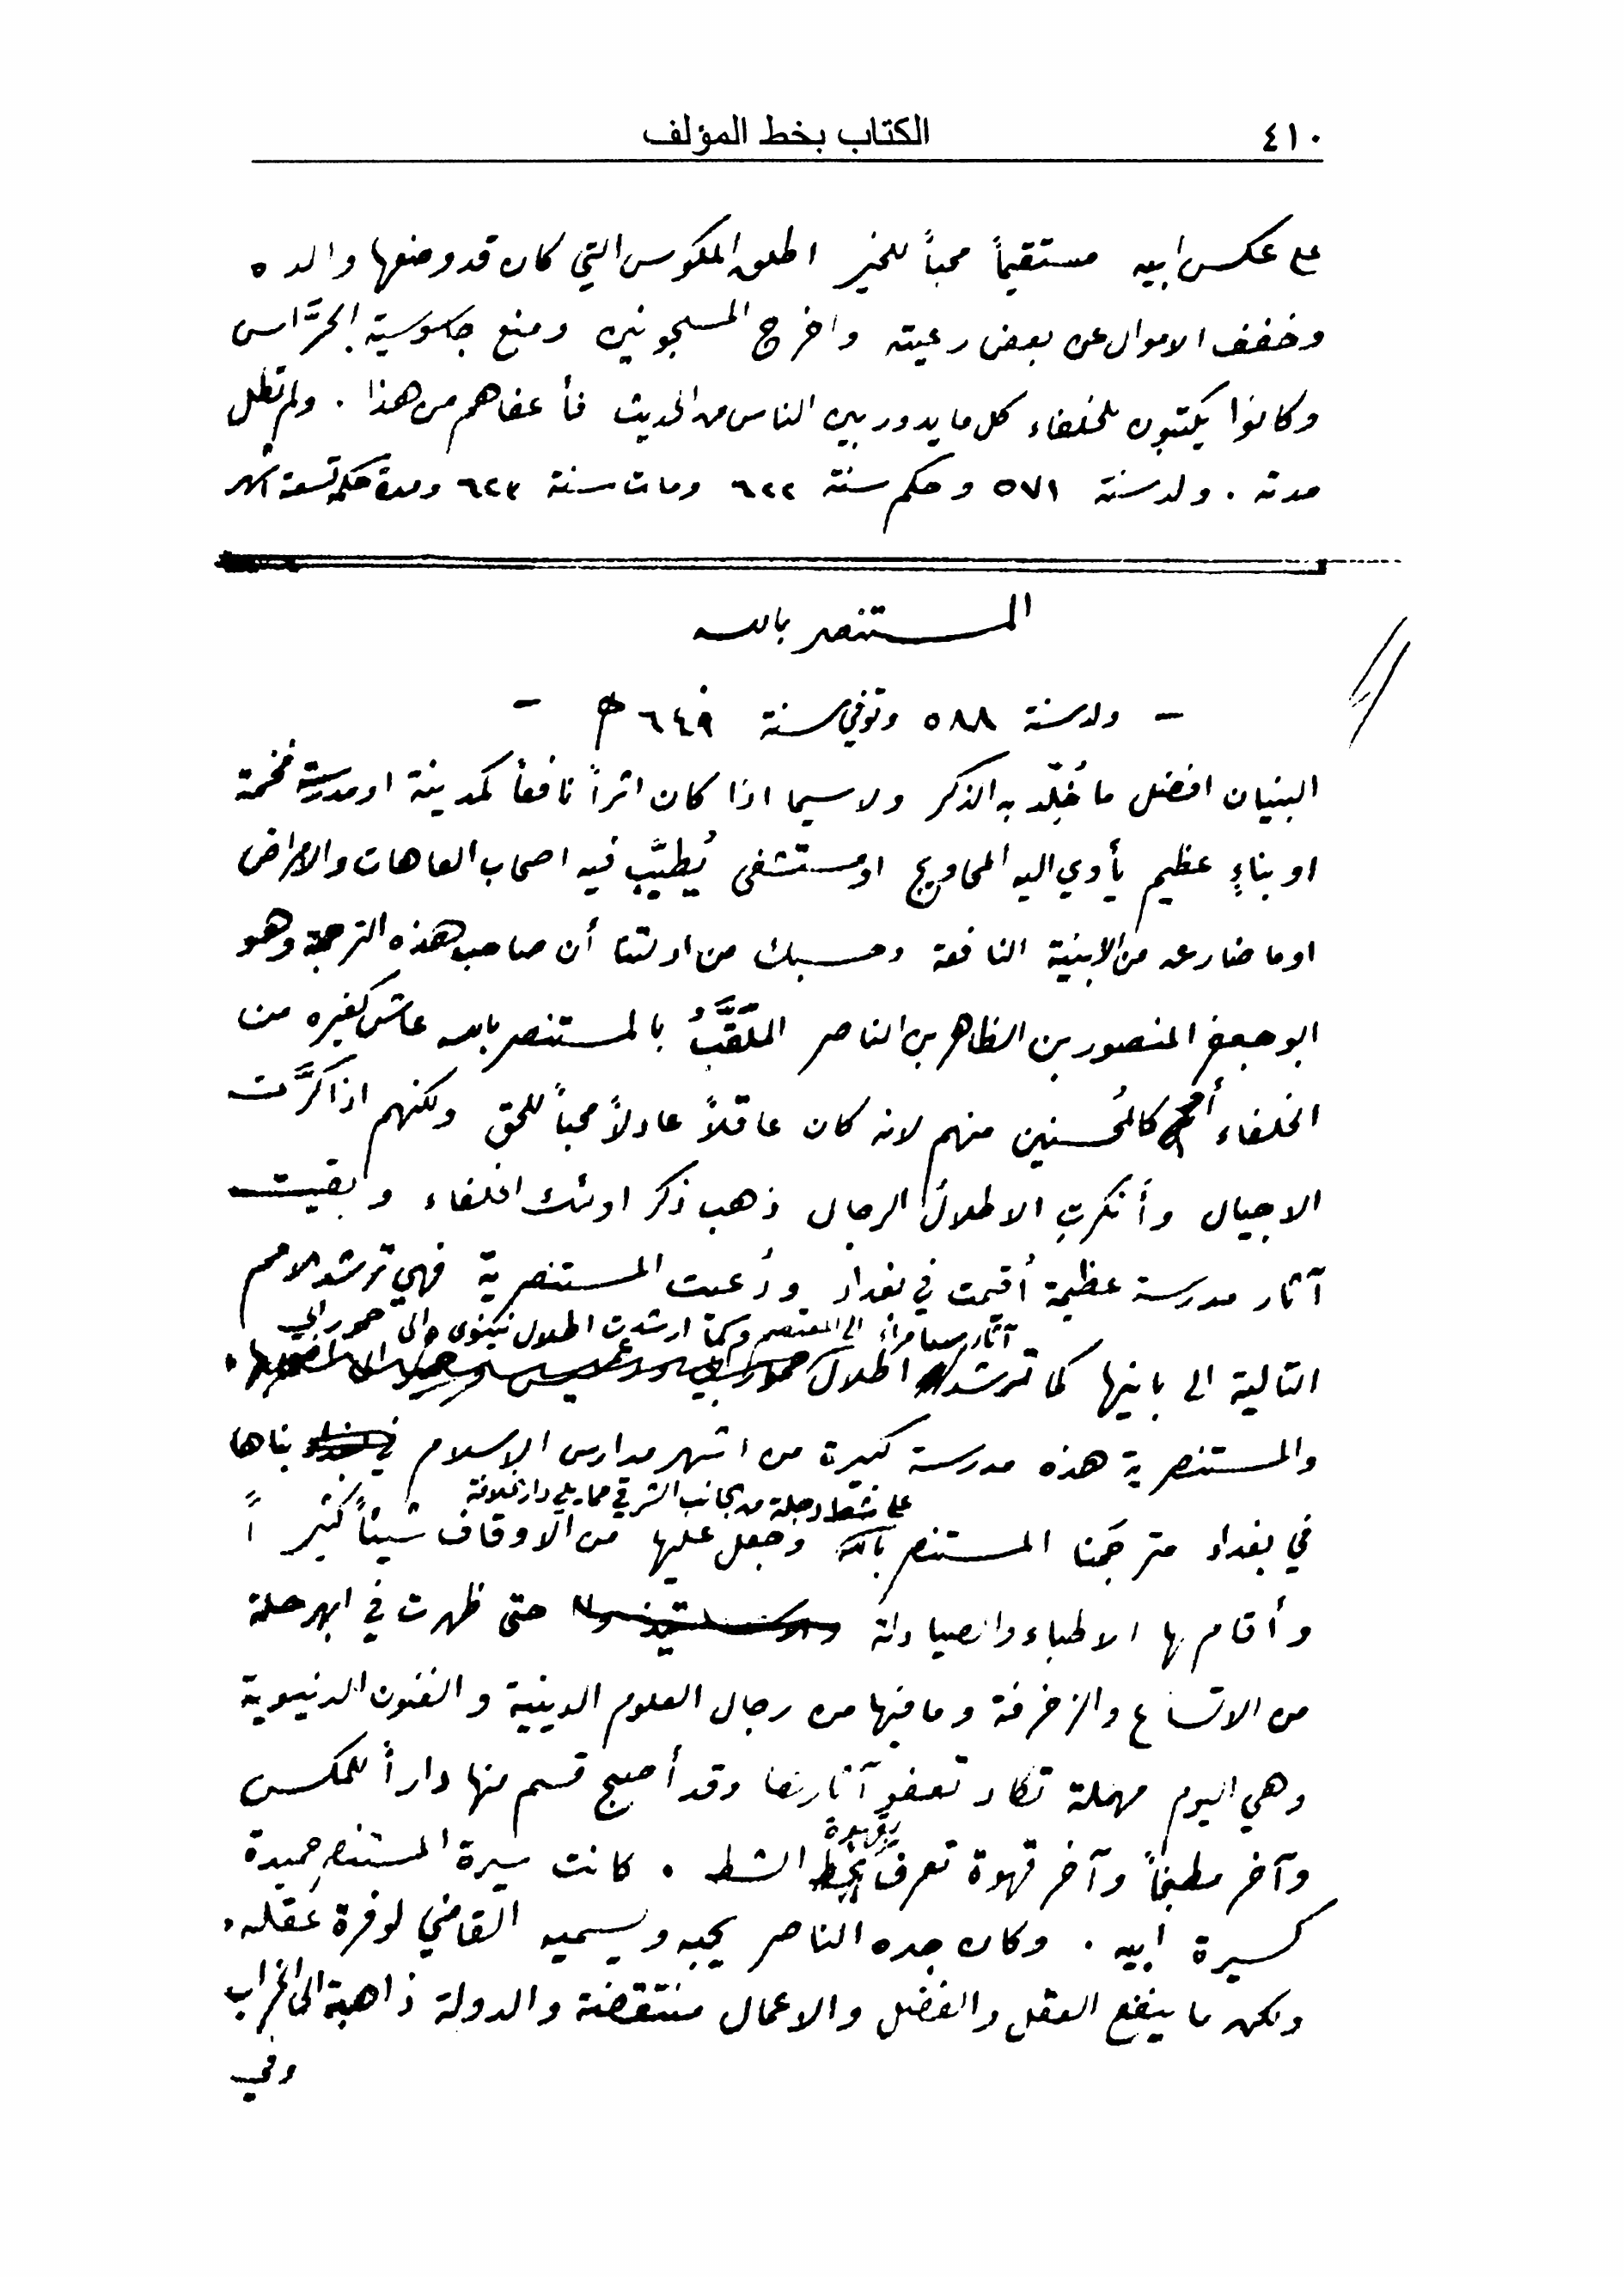 ٤١٠ الكتاب بخط المؤلف
على عكس ابيه مستقيماً محباً للخير اطلق المكوس التي كان قد وضعها والده
وخفف الاموال عن بعض رعيته واخرج المسجونين ومنع جاسوسية الحرَّاس
وكانوا يكتبون للخلفاء كل ما يدور بين الناس من الحديث فأعفاهم من هذا . ولم تطل
مدته . ولد سنة ٥٧١ وحكم سنة ٦٢٢ ومات سنة ٦٢٣ ومدة حكمه تسعة اشهر
المستنصر بالله
– ولد سنة ٥٨٨ وتوفي سنة ٦٤٩ ه –
البنيان افضل ما خُلِّد به الذكر ولا سيما اذا كان اثراً نافعاً كمدينة او مدرسة فخمة
او بناءٍ عظيم يأوي اليه المحاويج او مستشفى يُطبَّب فيه اصحاب العاهات والامراض
او ما ضارعه من الابنية النافعة وحسبك من ادلتنا أن صاحب هذه الترجمة وهو
ابو جعفر المنصور بن الظاهر بن الناصر الملقَّبُ بالمستنصر بالله عاش كغيره من
الخلفاء كالمُحسنين منهم لانه كان عاقلاً عادلاً محباً للحق ولكنهم اذا كرَّت
الاجيال وأنكرتِ الاطلالُ الرجال ذهب ذكر اولئك الخلفاء وبقيت
آثار مدرسة عظيمة أُقيمت في بغداد ودُعيت المستنصرية فهي ترشد الامم
آثار سامراء الى المعتصم وكما ارشدت اطلال نينوى والى حمورابي
التالية الى بانيها كما ترشد اطلال
والمستنصرية هذه مدرسة كبيرة من اشهر مدارس الاسلام بناها
على شط دجلة من الجانب الشرقي مما يلي دار الخلافة
في بغداد مترجَمنا المستنصر بالله وجعل عليها من الاوقاف شيئاً كثيراً
وأقام لها الاطباء والصيادلة حتى ظهرت في ابهر حلة
من الاتساع والزخرفة وما فيها من رجال العلوم الدينية والفنون الدنيوية
وهي اليوم مهملة تكاد تعفو آثارها وقد أصبح قسم منها داراً للمكس
وآخر مطبخاً وآخر قهوة تعرف الشط . كانت سيرة المستنصر حميدة
كسيرة ابيه . وكان جده الناصر يحبه ويسميه القاضي لوفرة عقله .
ولكن ما ينفع العقل والفضل والاعمال منتقضة والدولة ذاهبة الى الخراب
وفي